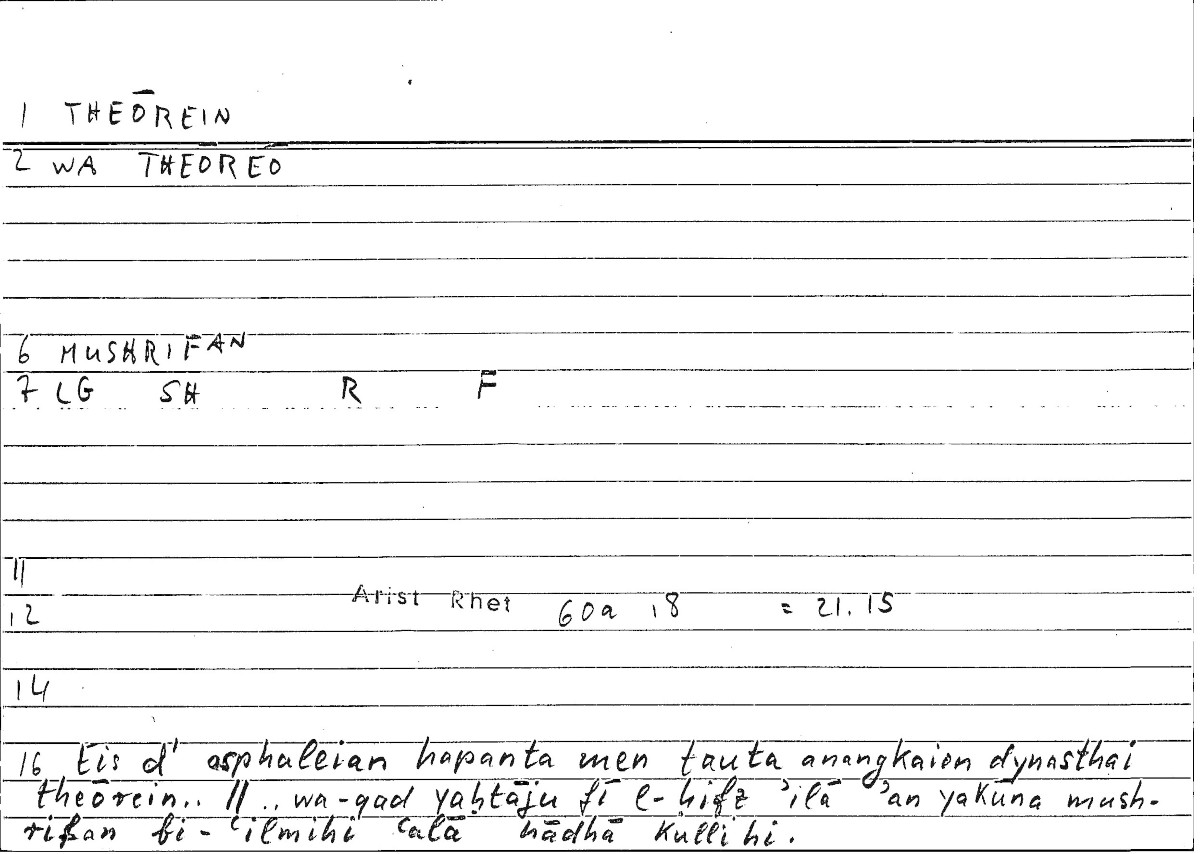 1 THEŌREIN
2 WA THEŌREŌ
6 MUSHRIFAN
7 LG SH R F
11
12 Arist Rhet 60a 18 = 21.15
14
16 Eis d' asphaleian hapanta men tauta anangkaion dynasthai
theōrein.. || .. wa-qad yaḥtāju fī l-ḥifẓ 'ilā 'an yakūna mush-
rifan bi-ʿilmihi ʿalā hādhā kullihi.